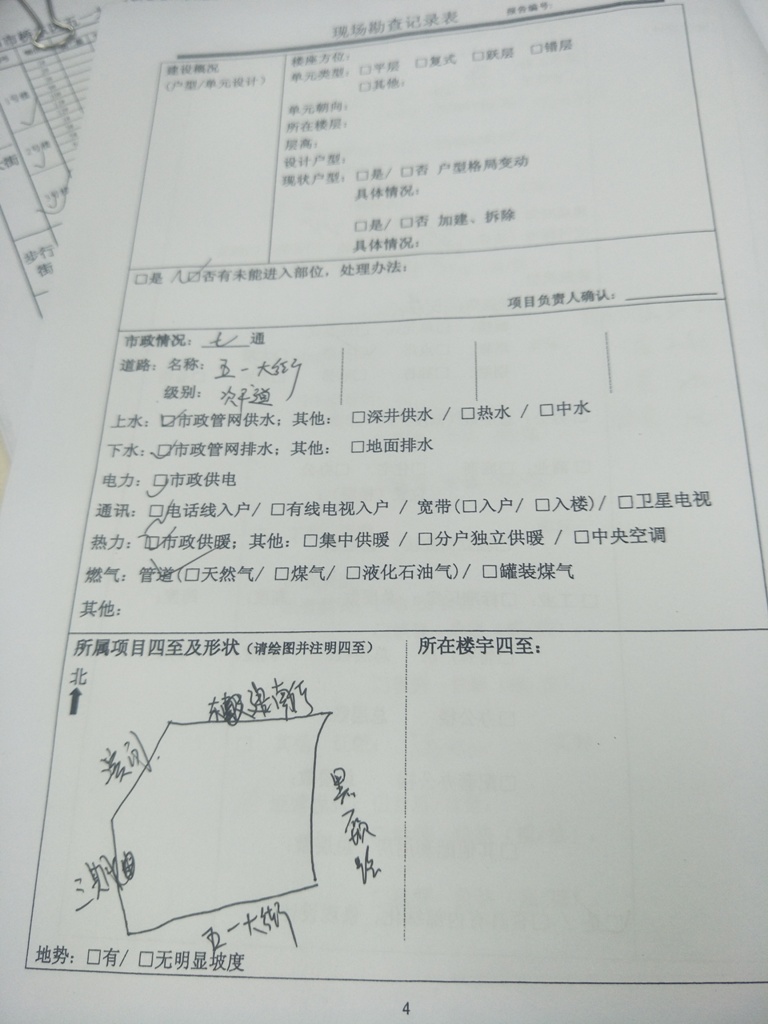 现场勘查记录表
报告编号：
建设概况
（户型/单元设计）
楼座方位：
单元类型：□平层 □复式 □跃层 □错层
□其他：
单元朝向：
所在楼层：
层高：
设计户型：
现状户型：□是/ □否 户型格局变动
具体情况：
□是/ □否 加建、拆除
具体情况：
□是 ☑否有未能进入部位，处理办法：
项目负责人确认：
市政情况：七 通
道路：名称：五一大街
级别：次干道
上水：☑市政管网供水；其他：□深井供水 / □热水 / □中水
下水：☑市政管网排水；其他：□地面排水
电力：☑市政供电
通讯：☑电话线入户/ □有线电视入户 / 宽带(□入户/ □入楼)/ □卫星电视
热力：☑市政供暖；其他：□集中供暖 / □分户独立供暖 / □中央空调
燃气：管道(☑天然气/ □煤气/ □液化石油气)/ □罐装煤气
其他：
所属项目四至及形状（请绘图并注明四至）
所在楼宇四至：
北
南街
三期
五一大街
地势：□有/ □无明显坡度
4
1号楼
2号楼
步行
街